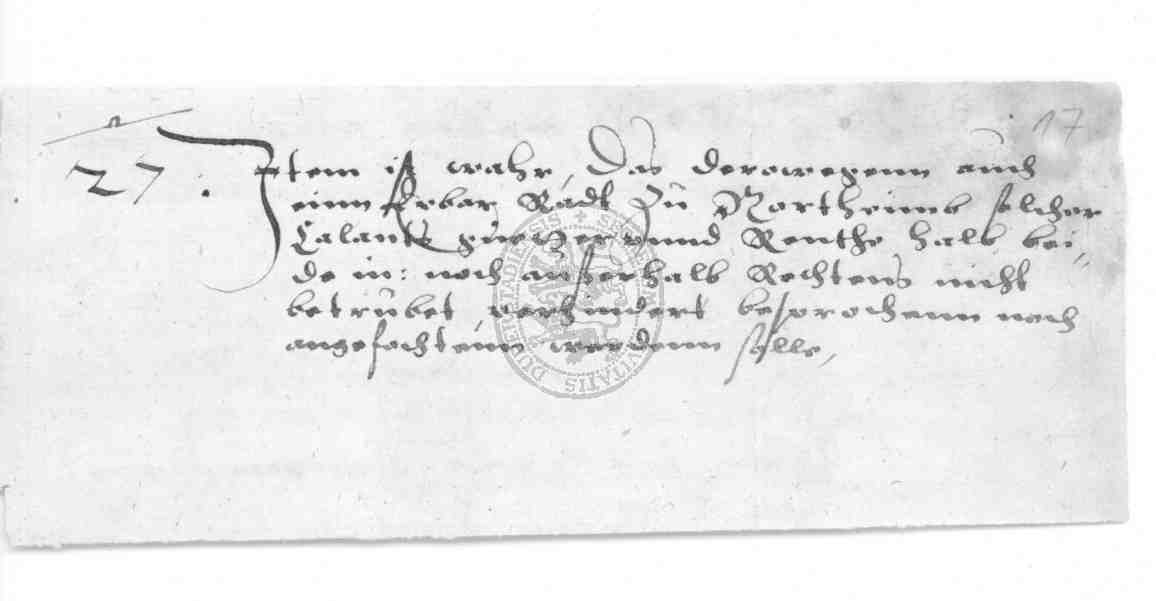 17
27. Item ist wahr, Das derowegenn auch
einn Erbar Radt Zu Northeimb solcher
Calants guether vnnd Renthe halb bei-
de in: noch ausserhalb Rechtens nicht
betrübet, verhindert besprochenn noch
angefochtenn werdenn solle,